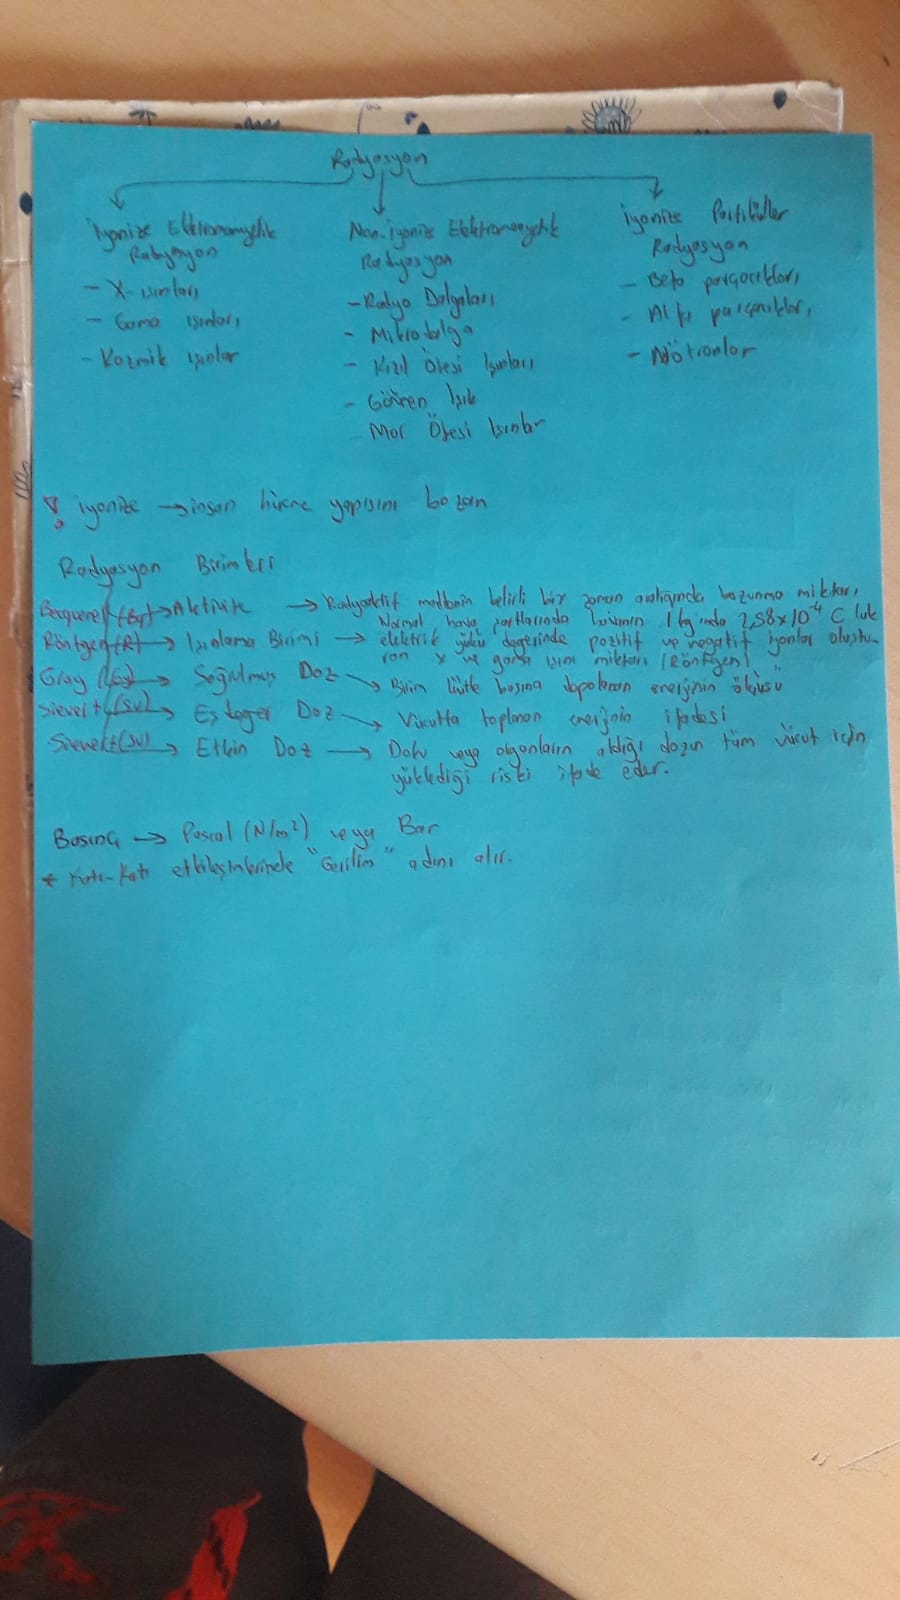 Radyasyon
İyonize Elektromanyetik Radyasyon
- X-ışınları
- Gama ışınları
- Kozmik ışınlar
Non-iyonize Elektromanyetik Radyasyon
- Radyo Dalgaları
- Mikrodalga
- Kızıl Ötesi Işınları
- Görünen Işık
- Mor Ötesi Işınlar
İyonize Partiküller Radyasyon
- Beta parçacıkları
- Alfa parçacıkları
- Nötronlar
iyonize → insan hücre yapısını bozan
Radyasyon Birimleri
Becquerel (Bq) → Aktivite → Radyoaktif maddenin belirli bir zaman aralığında bozunma miktarı
Röntgen (R) → Işınlama Birimi → Normal hava şartlarında havanın 1 kg'ında 2,58x10⁻⁴ C'luk
elektrik yükü değerinde pozitif ve negatif iyonlar oluştu-
ran x ve gama ışını miktarı (Röntgen)
Gray (Gy) → Soğulmuş Doz → Birim kütle başına depolanan enerjinin ölçüsü
Sievert (Sv) → Eşdeğer Doz → Vücutta toplanan enerjinin ifadesi
Sievert (Sv) → Etkin Doz → Doku veya organların aldığı dozun tüm vücut için
yüklediği riski ifade eder.
Basınç → Pascal (N/m²) veya Bar
* Katı-Katı etkileşimlerinde "Gerilim" adını alır.